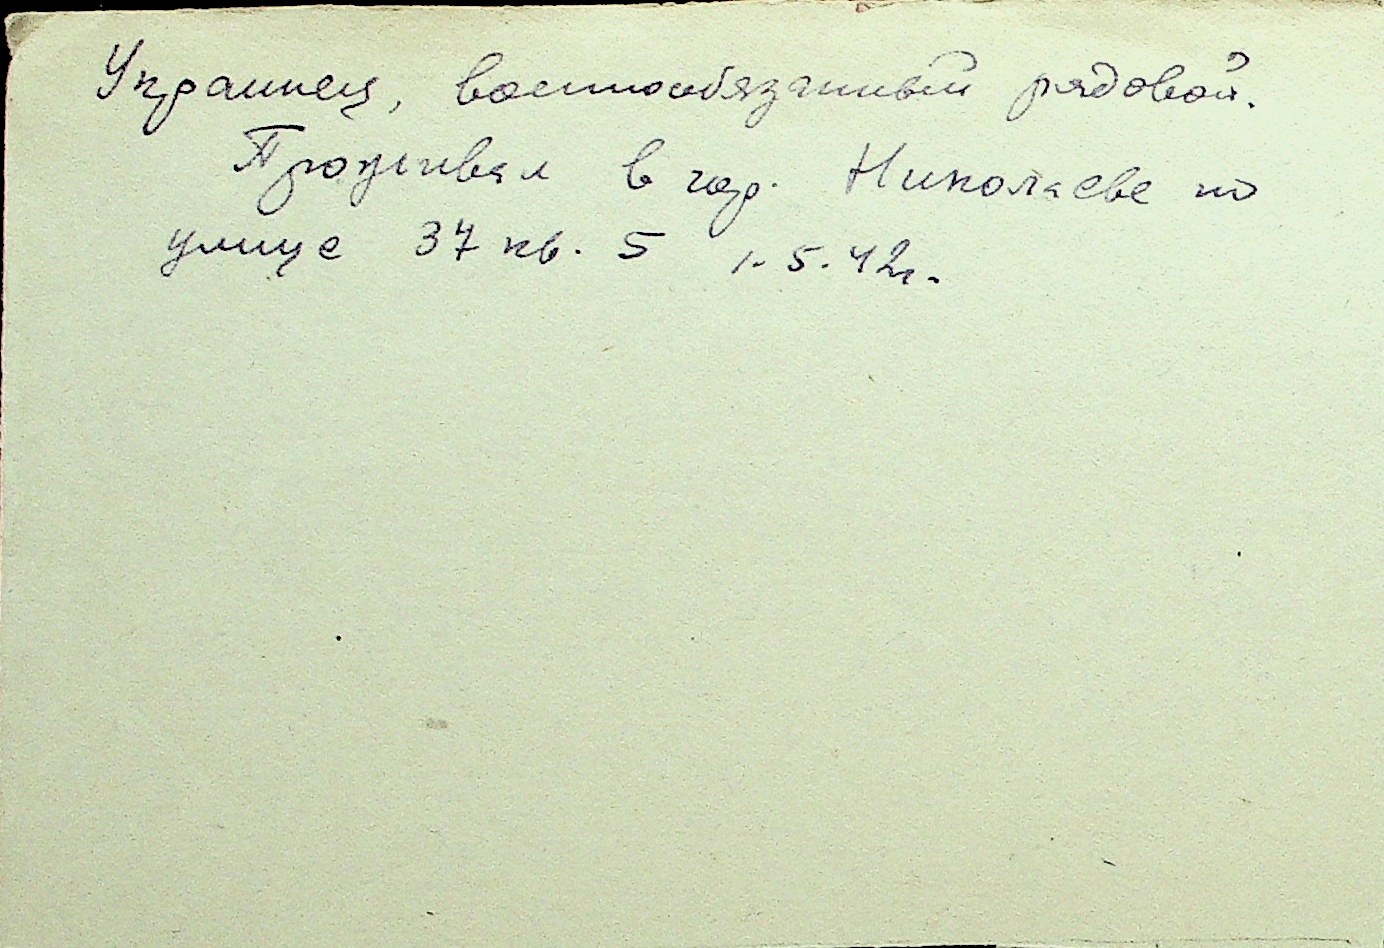 Украинец, военнообязанный рядовой.
Проживал в гор. Николаеве по
улице 37 кв. 5 1.5.42г.